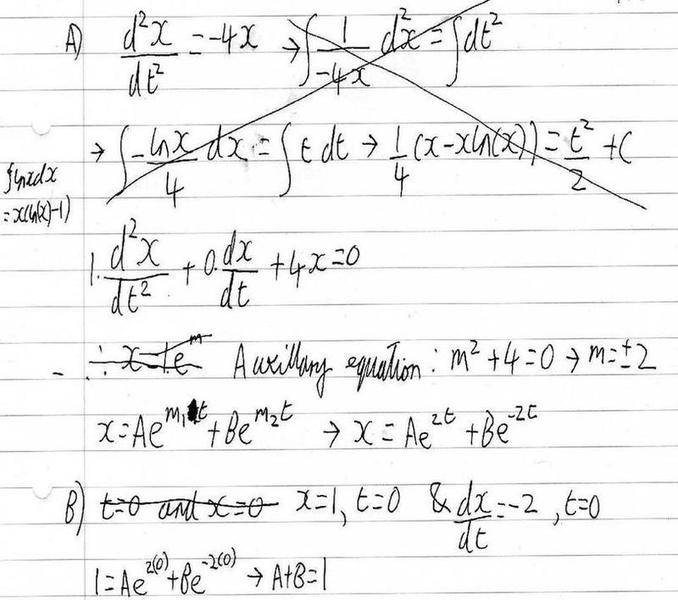 A) d²x/dt² = -4x → ∫ 1/-4x d²x = ∫ dt²
→ ∫ -lnx/4 dx = ∫ t dt → 1/4 (x-xln(x)) = t²/2 + C
∫lnxdx
=x(ln(x)-1)
1. d²x/dt² + 0. dx/dt + 4x=0
∴ x=1e^m Auxillary equation: m²+4=0 → m=±2
x=Ae^(m₁t) + Be^(m₂t) → x=Ae^(2t) + Be^(-2t)
B) t=0 and x=0 x=1, t=0 & dx/dt=-2, t=0
1=Ae^(2(0)) + Be^(-2(0)) → A+B=1